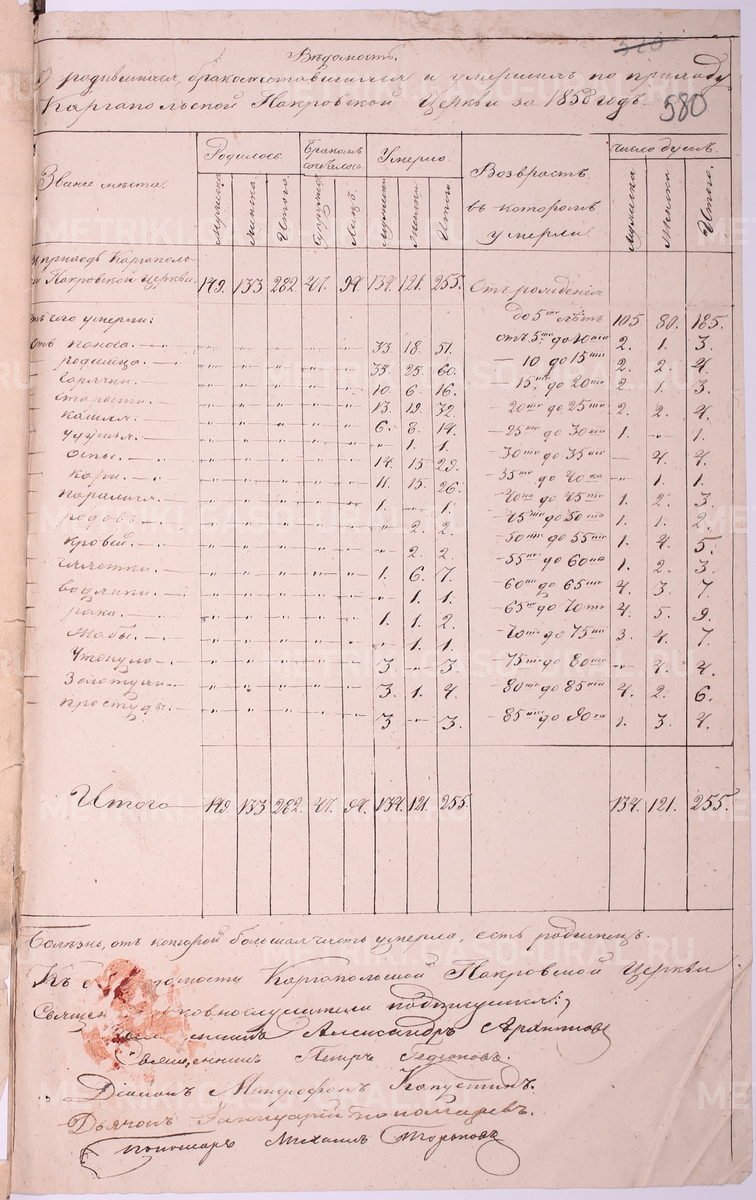 Вѣдомость.
О родившихся, бракосочетавшихся и умершихъ по приходу
Каргапольской Покровской Церкви за 1858 годъ.
580
Званіе мѣста.
Родилось.
Бракомъ сочеталось.
Умерло.
Возврастъ въ которомъ умерли.
Число душъ.
Мужеска Женска. Итого. Супружествъ Лицъ. Мужеска Женска Итого Мужеска Женска Итого.
приходѣ Каргаполь-
Покровской Церкви. 149. 133. 282. 47. 94. 134. 121. 255. Отъ рожденія
чего умерли: до 5ти лѣтъ 105. 80. 185.
Отъ поноса. — " " " " " 33. 18. 51. отъ 5ти до 10ти 2. 1. 3.
родимца. — " " " " " 35. 25. 60. — 10 до 15ти 2. 2. 4.
Горячки. — " " " " " 10. 6. 16. — 15ти до 20ти 2. 1. 3.
Старости. — " " " " " 13. 19. 32. — 20ти до 25ти 2. 2. 4.
Кашля. — " " " " " 6. 8. 14. — 25ти до 30ти 1. " 1.
Удушья. — " " " " " " 1. 1. — 30ти до 35ти " 4. 4.
Оспы. — " " " " " 14. 15. 29. — 35ти до 40ка " 1. 1.
Кори. — " " " " " 11. 15. 26. — 40ка до 45ти 1. 2. 3.
Паралича. — " " " " " 1. " 1. — 45ти до 50ти 1. 1. 2.
родовъ. — " " " " " " 2. 2. — 50ти до 55ти 1. 4. 5.
Кровей. — " " " " " " 2. 2. — 55ти до 60ти 1. 2. 3.
Чахотки. — " " " " " 1. 6. 7. — 60ти до 65ти 4. 3. 7.
водянки. — " " " " " " 1. 1. — 65ти до 70ти 4. 5. 9.
рака. — " " " " " 1. 1. 2. — 70ти до 75ти 3. 4. 7.
Жабы. — " " " " " " 1. 1. — 75ти до 80ти " 4. 4.
Утонуло — " " " " " 3. " 3. — 80ти до 85ти 4. 2. 6.
Золотухи — " " " " " 3. 1. 4. — 85ти до 90ти 1. 3. 4.
Простуды. — " " " " " 3. " 3.
Итого — 149. 133. 282. 47. 94. 134. 121. 255. 134. 121. 255.
Болѣзнь, отъ которой большая часть умерла, есть родимецъ.
Къ Каргапольской Покровской Церкви
Священно подписуемся:
Александръ Архиповъ
Священникъ Петръ
Діаконъ Митрофанъ Капустинъ.
Дьячокъ Іаннуарій Пономаревъ.
Пономарь Михаилъ